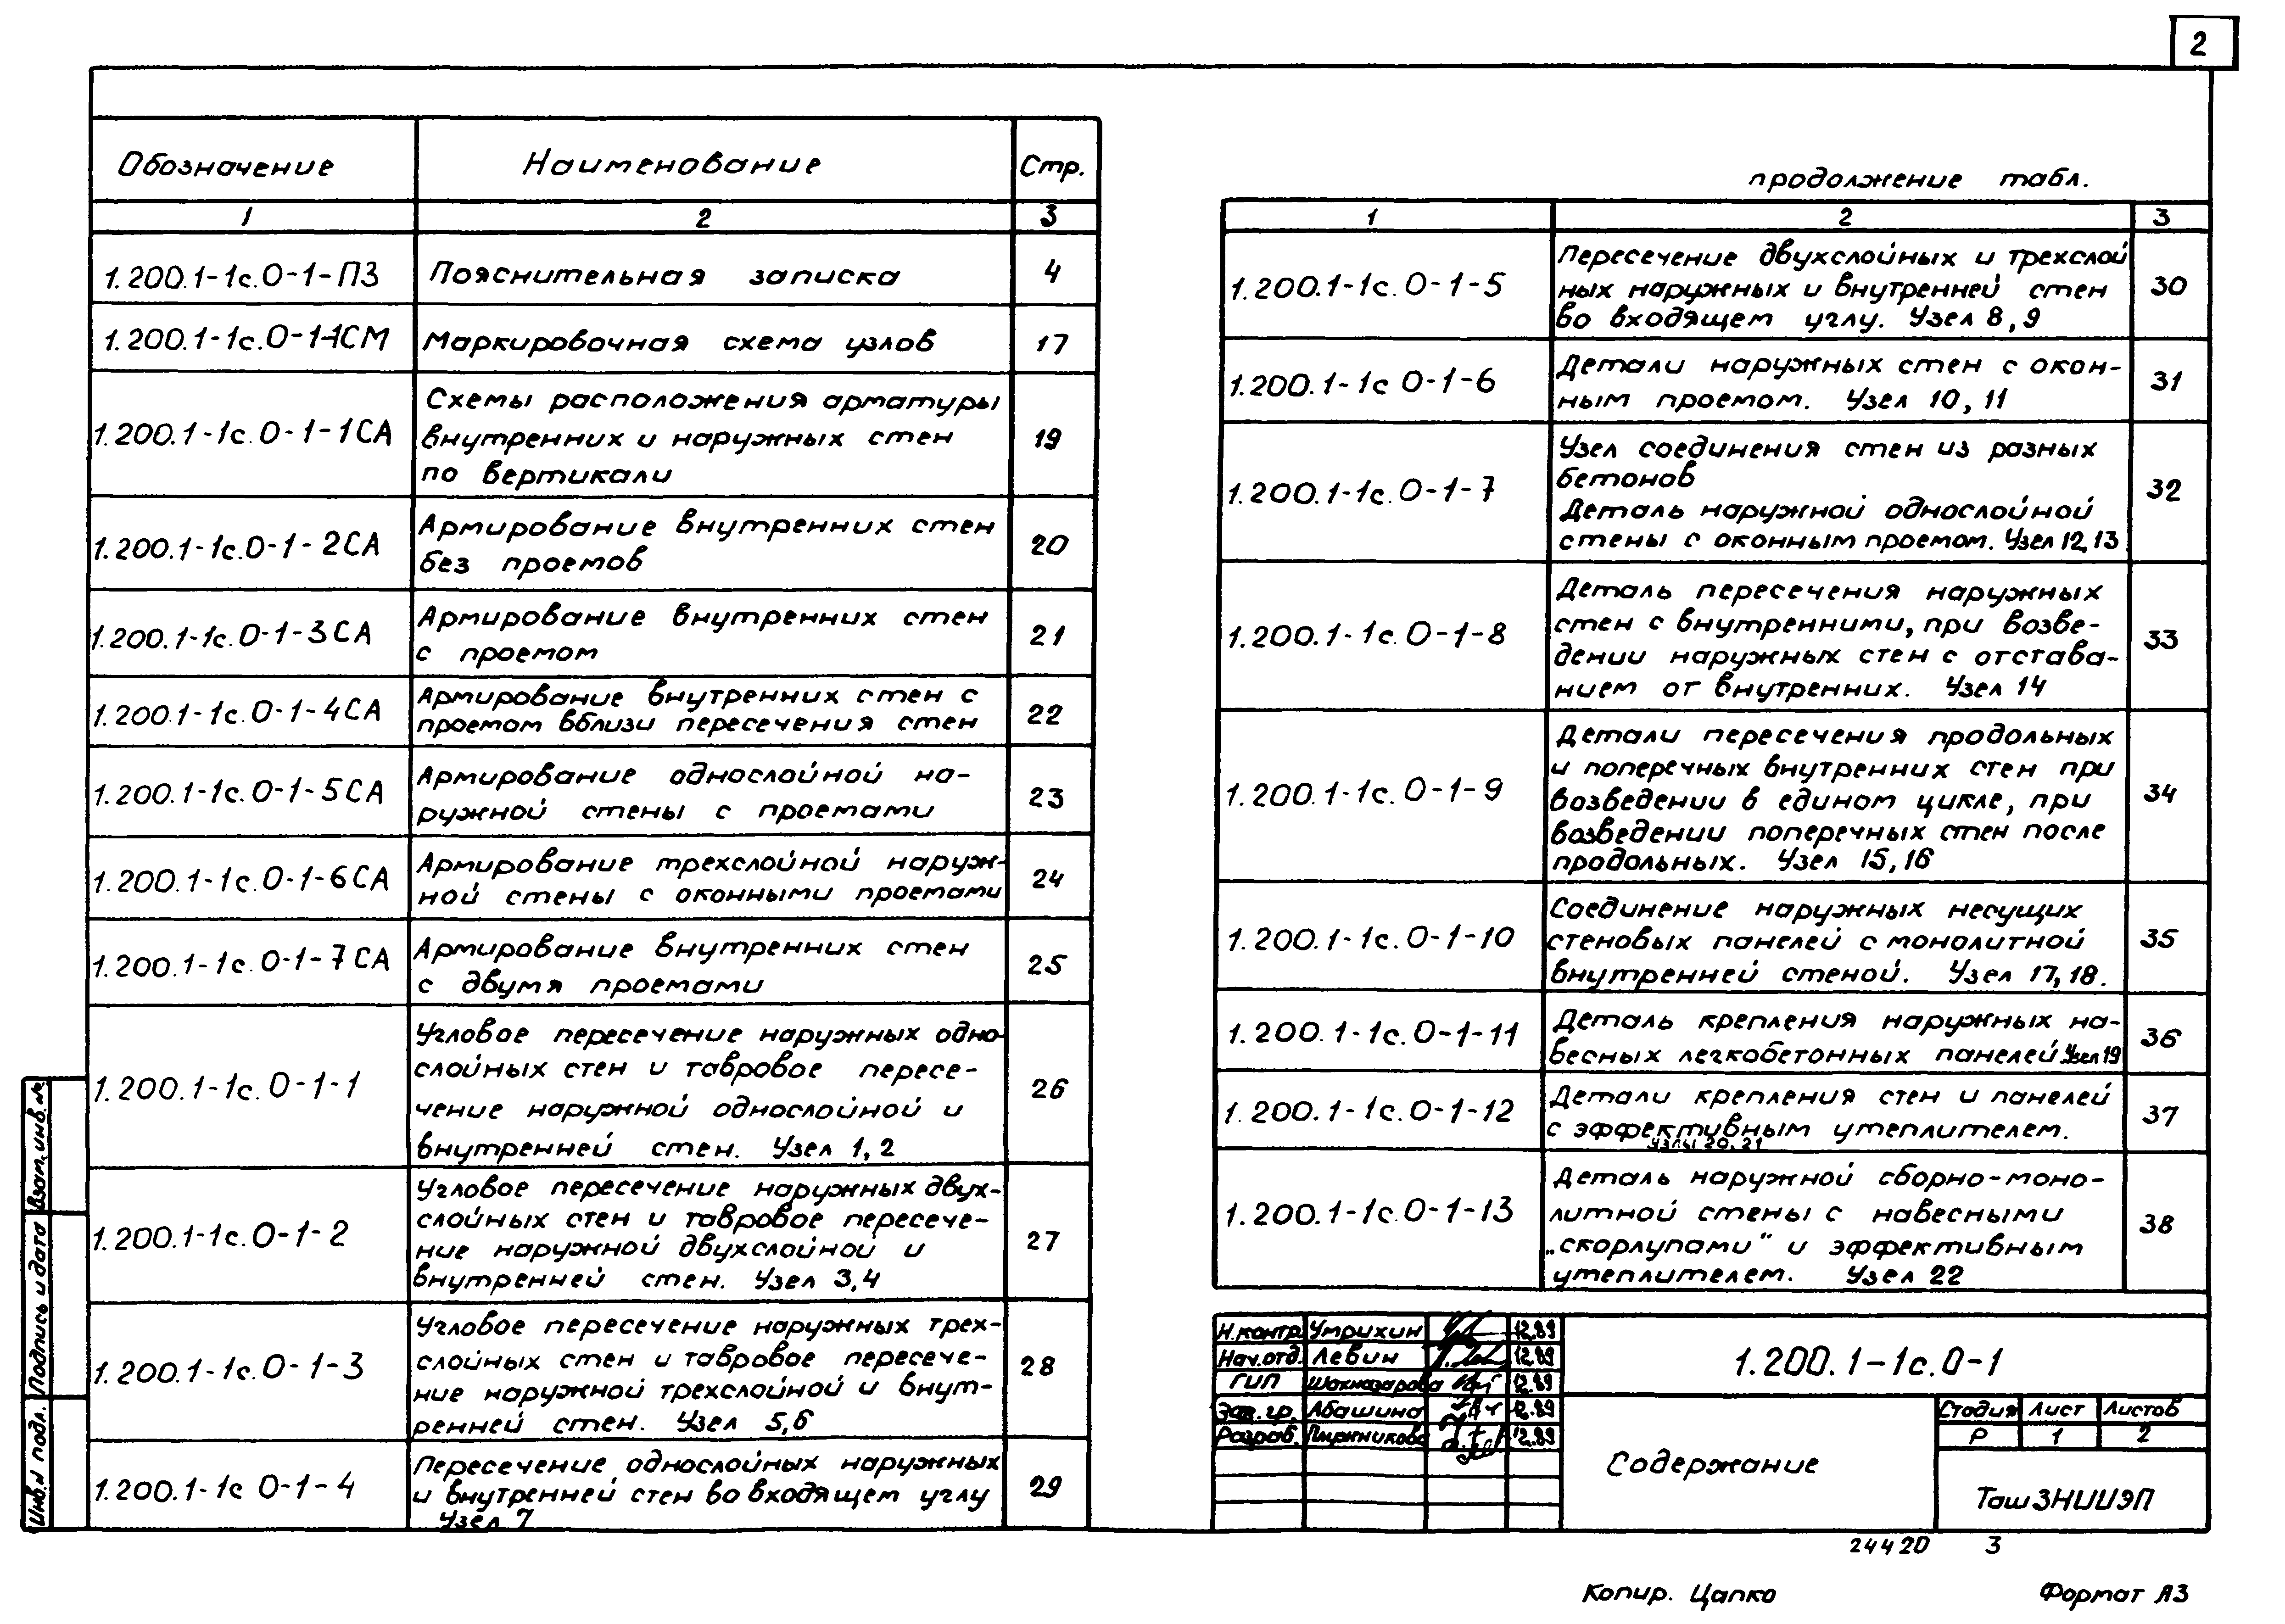 2
Обозначение Наименование Стр.
1 2 3
1.200.1-1с.0-1-ПЗ Пояснительная записка 4
1.200.1-1с.0-1-1СМ Маркировочная схема узлов 17
1.200.1-1с.0-1-1СА Схемы расположения арматуры
внутренних и наружных стен 19
по вертикали
1.200.1-1с.0-1-2СА Армирование внутренних стен 20
без проемов
1.200.1-1с.0-1-3СА Армирование внутренних стен 21
с проемом
1.200.1-1с.0-1-4СА Армирование внутренних стен с 22
проемом вблизи пересечения стен
1.200.1-1с.0-1-5СА Армирование однослойной на- 23
ружной стены с проемами
1.200.1-1с.0-1-6СА Армирование трехслойной наруж- 24
ной стены с оконными проемами
1.200.1-1с.0-1-7СА Армирование внутренних стен 25
с двумя проемами
1.200.1-1с.0-1-1 Угловое пересечение наружных одно-
слойных стен и тавровое пересе- 26
чение наружной однослойной и
внутренней стен. Узел 1,2
1.200.1-1с.0-1-2 Угловое пересечение наружных двух-
слойных стен и тавровое пересече-
ние наружной двухслойной и 27
внутренней стен. Узел 3,4
1.200.1-1с.0-1-3 Угловое пересечение наружных трех-
слойных стен и тавровое пересече- 28
ние наружной трехслойной и внут-
ренней стен. Узел 5,6
1.200.1-1с 0-1-4 Пересечение однослойных наружных
и внутренней стен во входящем углу 29
Узел 7
продолжение табл.
1 2 3
1.200.1-1с.0-1-5 Пересечение двухслойных и трехслой
ных наружных и внутренней стен 30
во входящем углу. Узел 8,9
1.200.1-1с 0-1-6 Детали наружных стен с окон- 31
ным проемом. Узел 10,11
1.200.1-1с.0-1-7 Узел соединения стен из разных
бетонов 32
Деталь наружной однослойной
стены с оконным проемом. Узел 12,13
1.200.1-1с.0-1-8 Деталь пересечения наружных
стен с внутренними, при возве- 33
дении наружных стен с отстава-
нием от внутренних. Узел 14
1.200.1-1с.0-1-9 Детали пересечения продольных
и поперечных внутренних стен при
возведении в едином цикле, при 34
возведении поперечных стен после
продольных. Узел 15,16
1.200.1-1с.0-1-10 Соединение наружных несущих
стеновых панелей с монолитной 35
внутренней стеной. Узел 17,18.
1.200.1-1с.0-1-11 Деталь крепления наружных на- 36
весных легкобетонных панелей Узел 19
1.200.1-1с.0-1-12 Детали крепления стен и панелей 37
с эффективным утеплителем.
Узлы 20,21
1.200.1-1с.0-1-13 Деталь наружной сборно-моно-
литной стены с навесными 38
„скорлупами“ и эффективным
утеплителем. Узел 22
Н.контр. Умрихин 12.89
Нач.отд. Левин 12.89
ГИП Шахназарова 12.89
Зав.гр. Абашина 12.89
Разраб. 12.89
1.200.1-1с.0-1
Содержание
Стадия Лист Листов
Р 1 2
ТашЗНИИЭП
24420 3
Копир. Цапко Формат А3
Инв.N подл. Подпись и дата Взам.инв.№